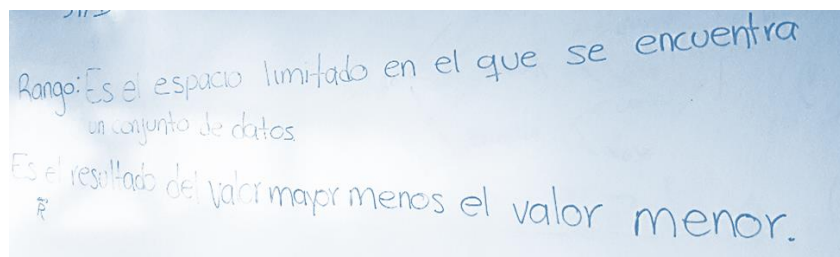 Rango: Es el espacio limitado en el que se encuentra
un conjunto de datos
Es el resultado del valor mayor menos el valor menor.